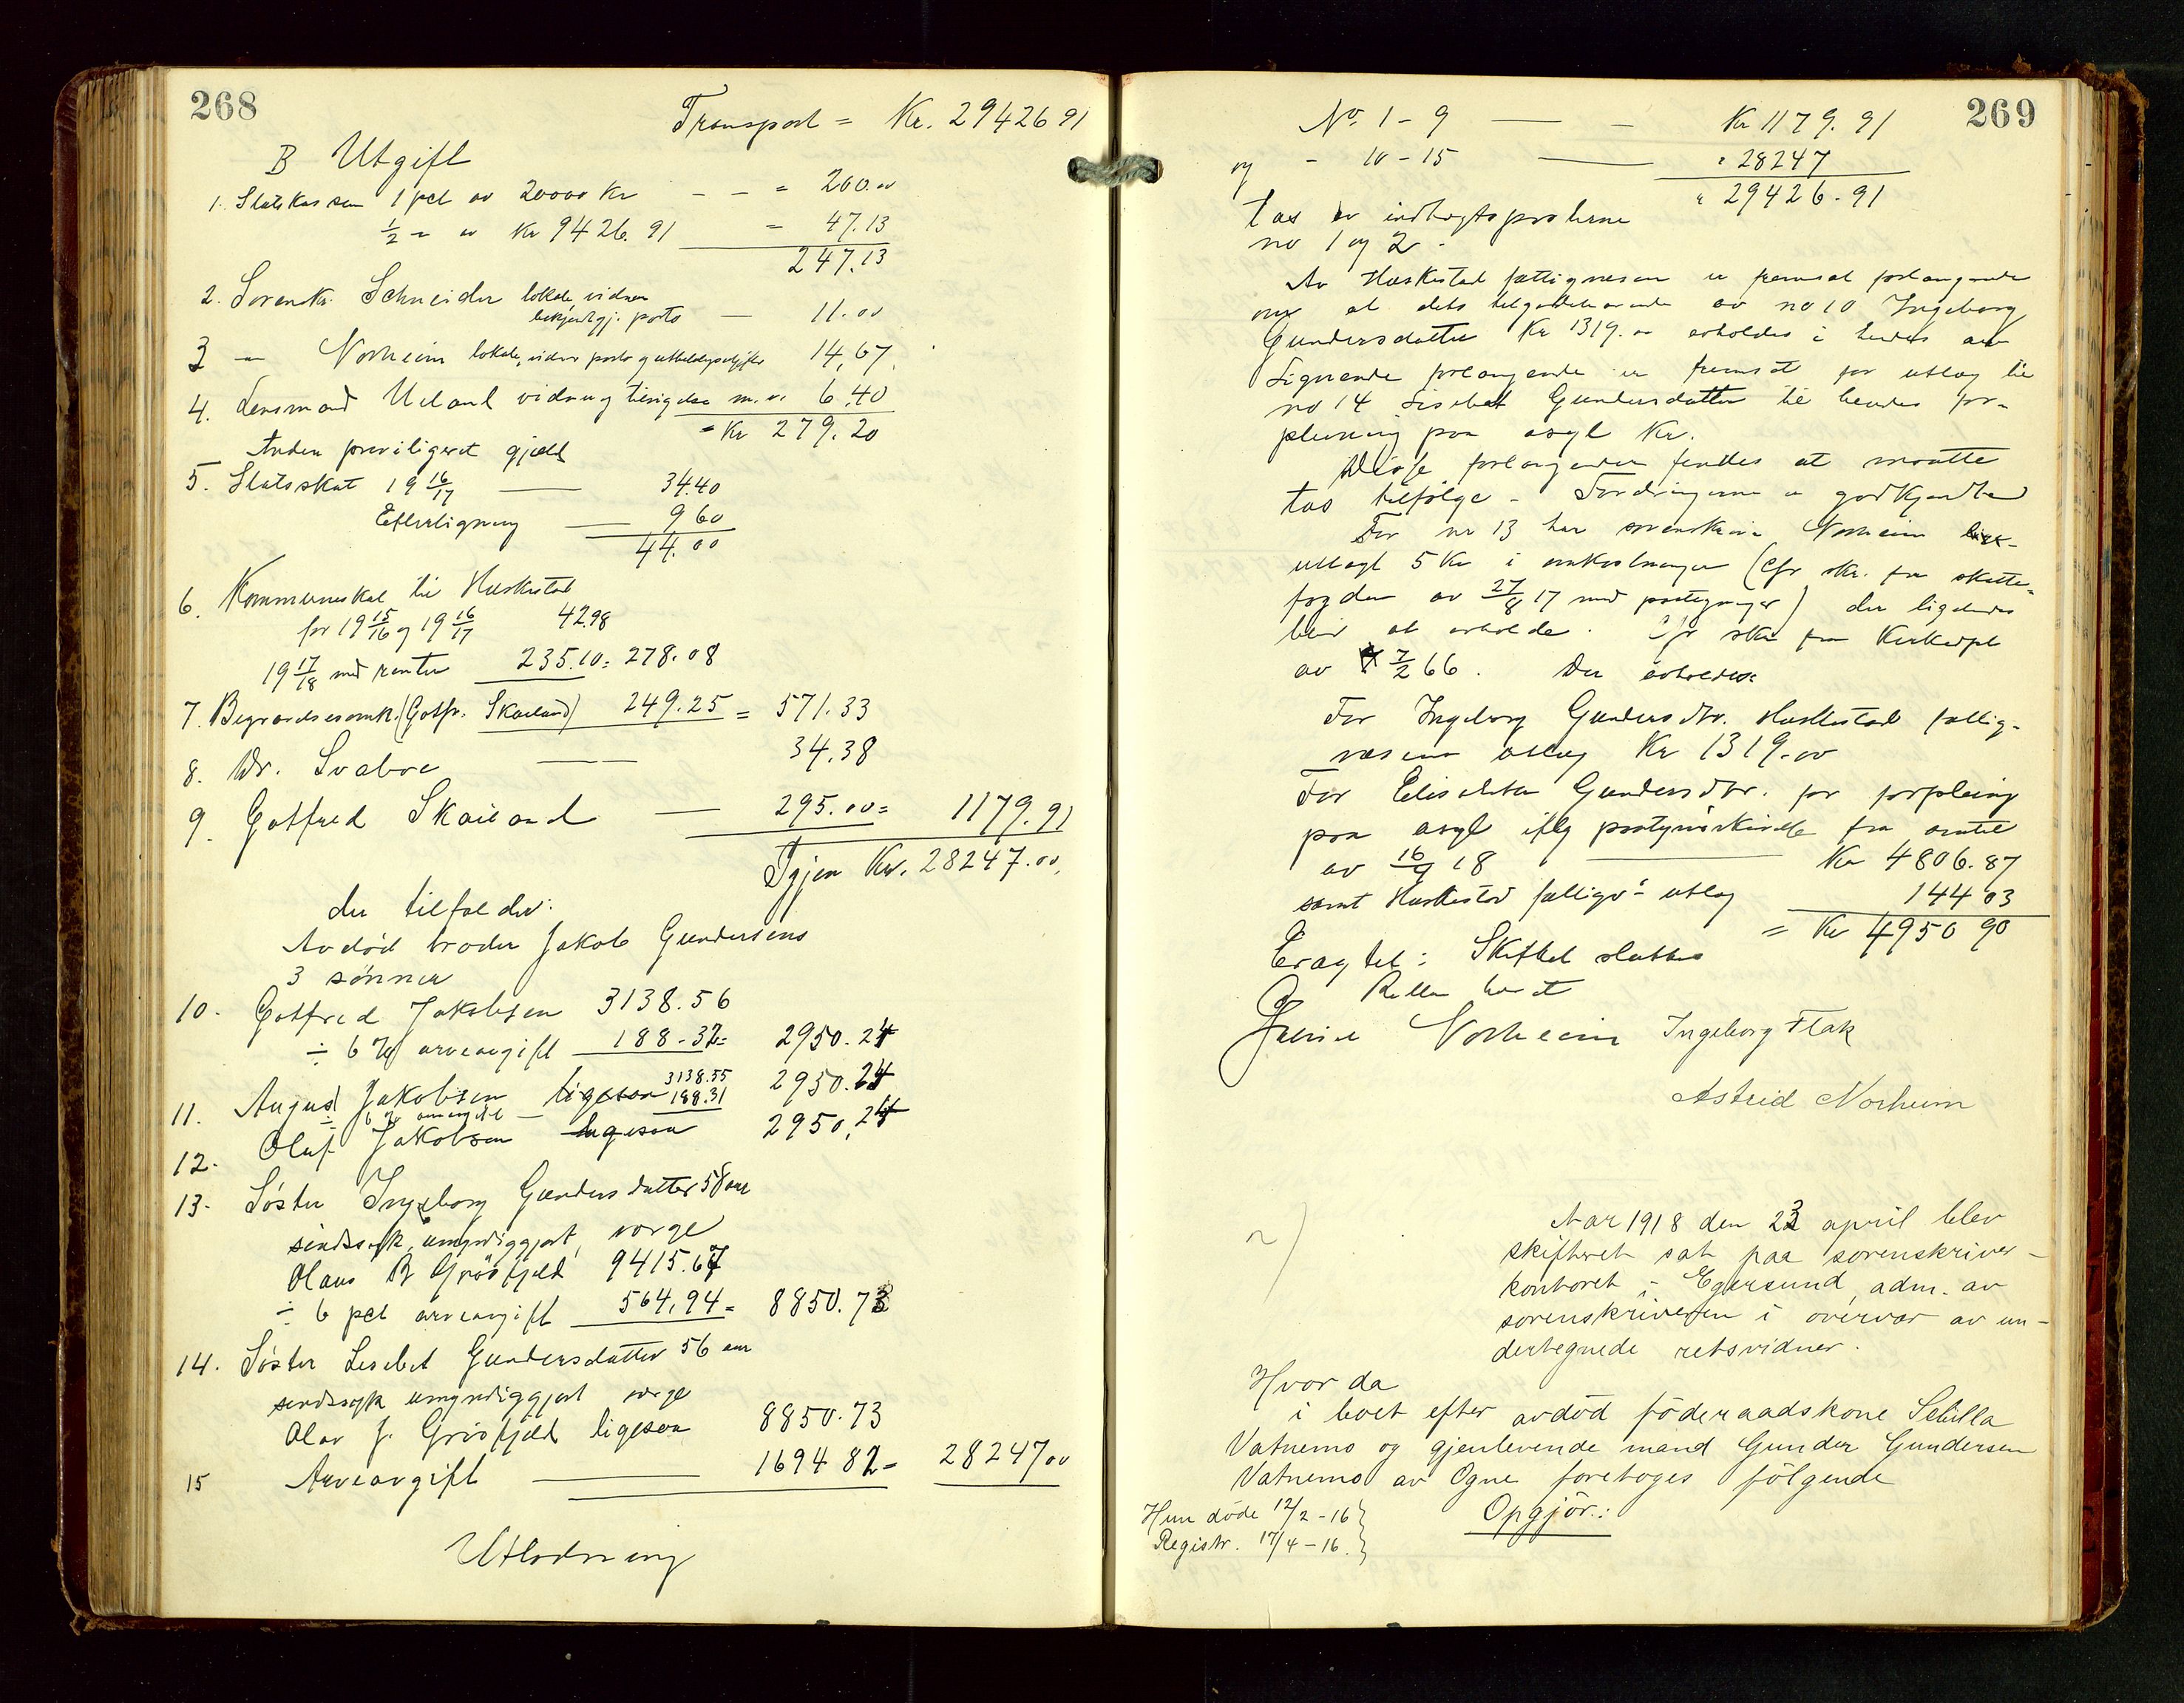 268
Transport = Kr. 29426 91
B Utgift
1. Statskassen 1 pct av 20000 Kr - - = 200.00
1/2 = av Kr 9426.91 = 47.13
247.13
2. Sorenskr. Schneider lokale, vidner
bekjendtgj. porto — 11.00
3 — Norheim lokale, vidner porto 14,67.
4. Lensmand Ueland vidne og m. v. 6.40
= Kr 279.20
Anden previligeret gjæld
5. Statsskat 19 16/17 — 34.40
Efterligning — 9 60
44.00
6. Kommuneskat til Heskestad
for 19 15/16 og 19 16/17 42.98
19 17/18 med renter 235.10 = 278.08
7. Begravelsesomk. (Gotfr. Skailand) 249.25 = 571.33
8. Dr. Svaboe — 34.38
9. Gotfred Skailand — 295.00 = 1179.91
Igjen Kr. 28247.00,
der tilfalder:
Avdød broder Jakob Gundersens
3 sønner
10. Gotfred Jakobsen 3138.56
÷ 6 % arveavgift 188.32= 2950.24
11. August Jakobsen ligesaa 3138.55 2950.24
÷ 6 % arveavgift — 188.31
12. Oluf Jakobsen ligesaa 2950.24
13. Søster Ingeborg Gundersdatter 58 aar
sindssyk, umyndiggjort, verge
Olaus B Grøsfjeld 9415.67
÷ 6 pct arveavgift 564.94 = 8850.73
14. Søster Lisebet Gundersdatter 56 aar
sindssyk umyndiggjort verge
Olav J. Grøsfjeld ligesaa 8850.73
15 Arveavgift — 1694 82 = 28247 00
Utlodning
269
No. 1 - 9 — - Kr 1179.91
og - 10 - 15 — " 28247
" 29426.91
tas av indtægtsposterne
no 1 og 2 -
Av Heskestad fattigvæsen er fremsat forlangende
om at dets tilgodehavende av no 10 Ingeborg
Gundersdatter Kr 1319.00 erholdes i hendes arv
Lignende forlangende er fremsat for utlæg til
no 14 Lisebet Gundersdatter til hendes for-
pleining paa asyl Kr.
Disse forlangender fandtes at maatte
tas tilfølge - Fordringerne er godkjendte
For nr 13 har sorenskriver Norheim
utlagt 5 Kr i omkostninger (Cfr skr. fra skatte-
fogden av 27/8 17 med paategninger) der ligeledes
blir at erholde. Cfr skr fra Kirkedpt
av 7/2 66. Der erholdes
For Ingeborg Gundersdtr. Heskestad fattig-
væsens utlæg Kr 1319.00
For Elisabeta Gundersdtr. for forpleing
paa asyl iflg fra amtet
av 16/9 18 — Kr 4806.87
samt Heskestad fattigv= utlæg 144 03
= Kr 4950 90
Eragtet: Skiftet sluttes
Retten hævet
Norheim Ingeborg Flak
Astrid Norheim
2)
Aar 1918 den 23 april blev
skifteret sat paa sorenskriver-
kontoret i Egersund, adm. av
sorenskriveren i overvær av un-
dertegnede retsvidner.
Hvor da
i boet efter avdød föderaadskone Sebilla
Vatnemo og gjenlevende mand Gunder Gundersen
Vatnemo av Ogne foretoges følgende
Hun døde 12/2 - 16 } Opgjör:
Registr. 17/4 - 16. }